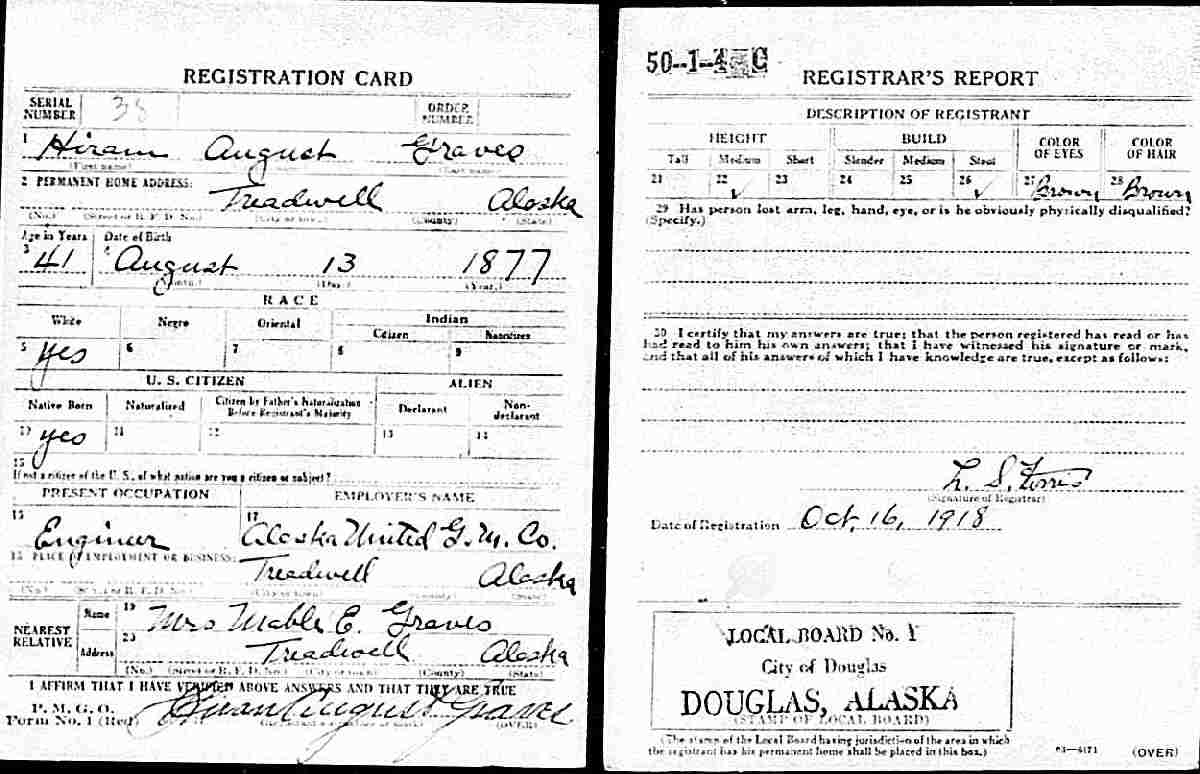 REGISTRATION CARD
SERIAL NUMBER 38 ORDER NUMBER
1 Hiram August Graves
(First name) (Last name)
2 PERMANENT HOME ADDRESS:
Treadwell Alaska
(No.) (Street or R. F. D. No.) (City or town) (County) (State)
Age in Years Date of Birth
3 41 4 August 13 1877
(Month.) (Day.) (Year.)
RACE
White Negro Oriental Indian
Citizen Noncitizen
5 yes 6 7 8 9
U. S. CITIZEN ALIEN
Native Born Naturalized Citizen by Father's Naturalization Before Registrant's Majority Declarant Non-declarant
10 yes 11 12 13 14
15
If not a citizen of the U. S., of what nation are you a citizen or subject?
PRESENT OCCUPATION EMPLOYER'S NAME
16 Engineer 17 Alaska United G. M. Co.
18 PLACE OF EMPLOYMENT OR BUSINESS:
Treadwell Alaska
(No.) (Street or R. F. D. No.) (City or town) (County) (State)
NEAREST RELATIVE
Name 19 Mrs Mable E. Graves
Address 20 Treadwell Alaska
(No.) (Street or R. F. D. No.) (City or town) (County) (State)
I AFFIRM THAT I HAVE VERIFIED ABOVE ANSWERS AND THAT THEY ARE TRUE
P. M. G. O.
Form No. 1 (Red) Hiram August Graves
(OVER)
50--1--4 C
REGISTRAR'S REPORT
DESCRIPTION OF REGISTRANT
HEIGHT BUILD COLOR OF EYES COLOR OF HAIR
Tall Medium Short Slender Medium Stout
21 22 ✓ 23 24 25 26 ✓ 27 Brown 28 Brown
29 Has person lost arm, leg, hand, eye, or is he obviously physically disqualified?
(Specify.)
30 I certify that my answers are true; that the person registered has read or has
had read to him his own answers; that I have witnessed his signature or mark,
and that all of his answers of which I have knowledge are true, except as follows:
(Signature of Registrar)
Date of Registration Oct, 16, 1918
LOCAL BOARD No. 1
City of Douglas
DOUGLAS, ALASKA
(STAMP OF LOCAL BOARD)
(The stamp of the Local Board having jurisdiction of the area in which
the registrant has his permanent home shall be placed in this box.)
03—6171 (OVER)